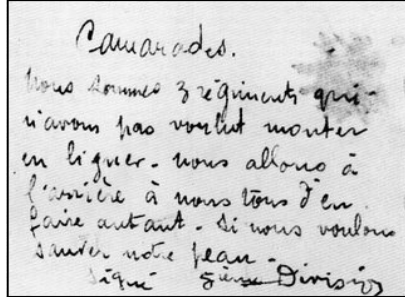 Camarades.
nous sommes 3 régiments qui
n'avons pas voulut monter
en ligner. nous allons à
l'arrière à nous tous d'en
faire autant. si nous voulons
sauver notre peau.
Signé 5ième Division